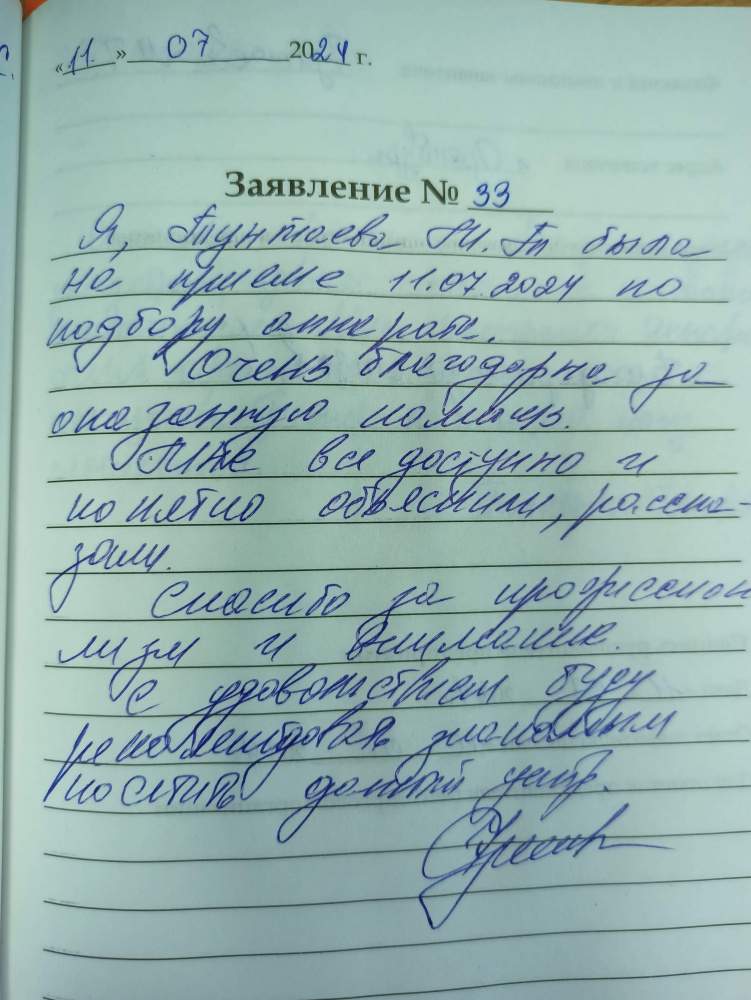 «11» 07 2024 г.
Заявление № 33
Я, Тунтаева М. Т. была
на приеме 11.07.2024 по
подбору аппарата.
Очень благодарна за
оказанную помощь.
Мне все доступно и
понятно объяснили, расска-
зали.
Спасибо за профессиона
лизм и внимание.
С удовольствием буду
рекомендовать знакомым
посетить данный центр.